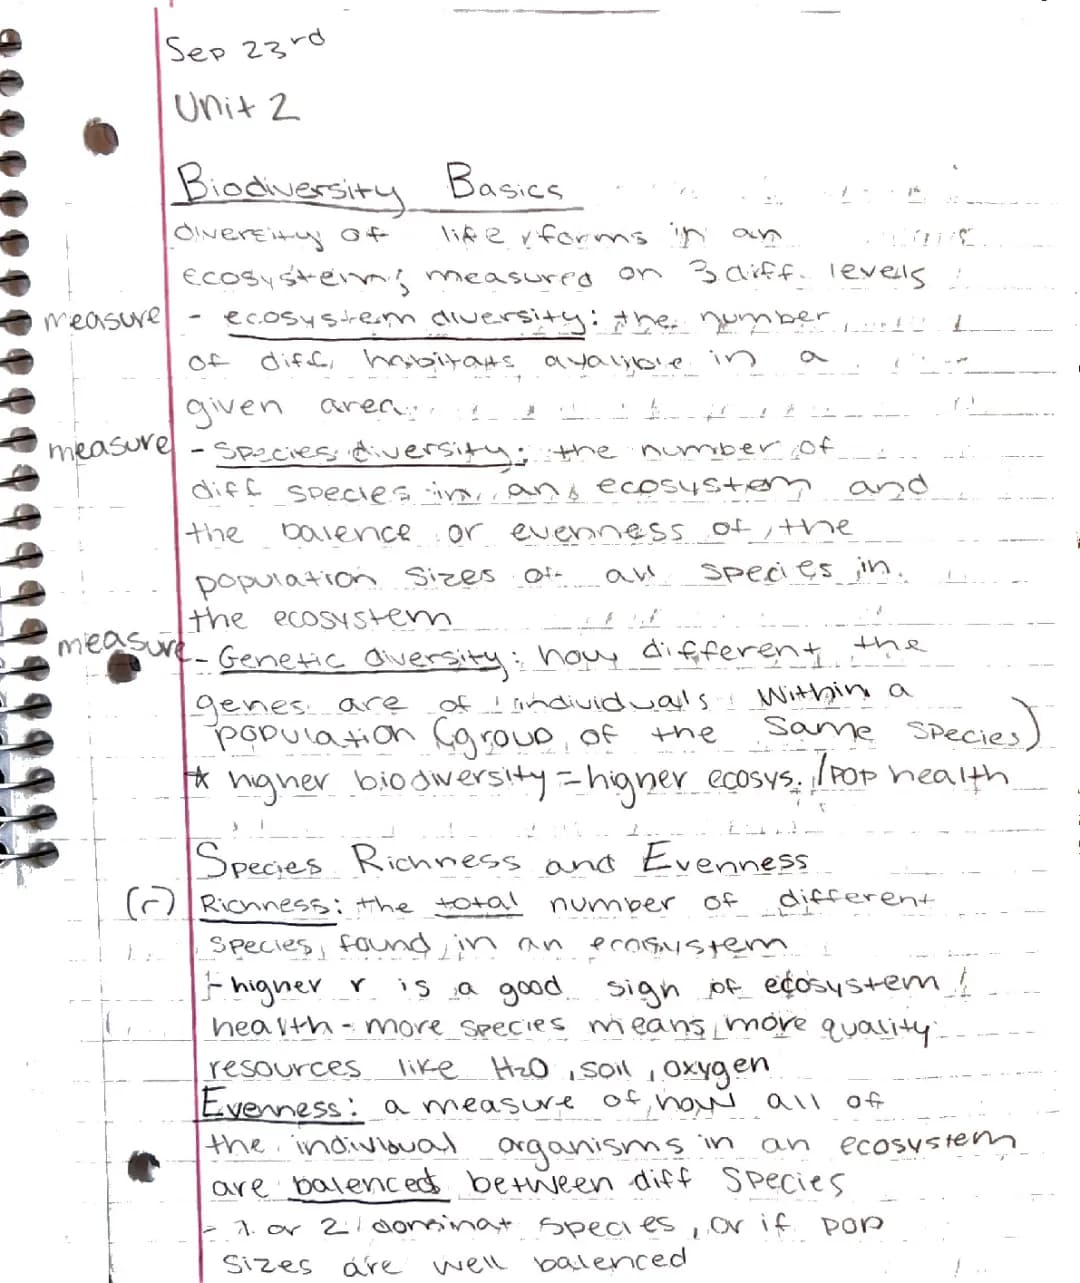 Sep 23rd
Unit 2
Biodiversity Basics
diversity of life forms in an
ecosystem; measured on 3 diff. levels
measure - ecosystem diversity: the number
of diff. habitats avalible in a
given area
measure - Species diversity: the number of
diff species in an ecosystem and
the balence or evenness of the
population sizes of all species in
the ecosystem
measure - Genetic diversity: how different the
genes are of individuals within a
population (group of the same species)
* higher biodiversity = higher ecosys. /pop health
Species Richness and Evenness
(r) Richness: the total number of different
species found in an ecosystem
- higher r is a good sign of ecosystem
health - more species means more quality
resources like H2O, soil, oxygen
Evenness: a measure of how all of
the individual organisms in an ecosystem
are balenced between diff species
- 1 or 2 dominat species, or if pop
sizes are well balenced